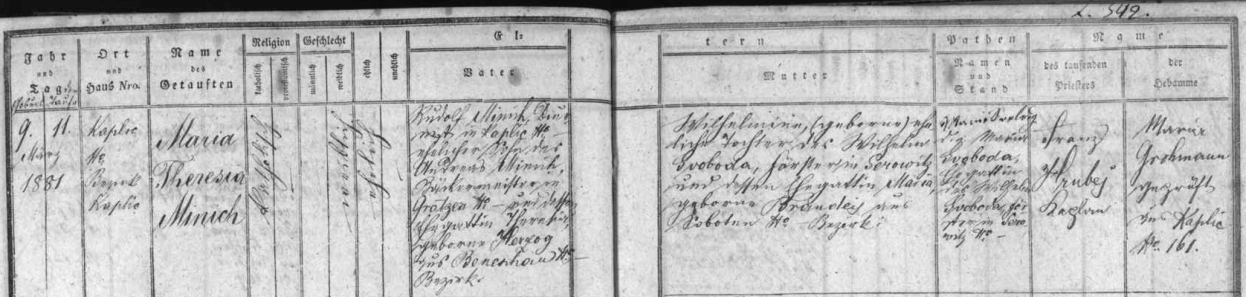 L. 549.
Jahr
und
Tag der
Geburt Taufe
Ort
und
Haus Nro.
Name
des
Getauften
Religion
katholisch
protestantisch
Geschlecht
männlich
weiblich
ehlich
unehlich
El=
Vater
tern
Mutter
Pathen
Namen
und
Stand
Name
des taufenden
Priesters
der
Hebamme
9. 11.
März
1881
Kaplic
No.
Bezirk
Kaplic
Maria
Theresia
Minich
katholisch
weiblich
ehelich
Rudolf Minich,
in Kaplic No –
ehelicher Sohn des
Andreas Minich,
Bäckermeister in
Gratzen No – und dessen
Ehegattin Theresia,
geborne Herzog
aus Beneschau No –
Bezirk.
Wilhelmine, (geborne) ehe
liche Tochter des Wilhelm
Svoboda, Förster in
und dessen Ehegattin Maria
geborne aus
No. Bezirk.
Maria
Svoboda,
Ehegattin
des Wilhelm
Svoboda, För
ster in
No –
Franz
Hrubej
Kaplan
Maria
Grohmann
geprüft
aus Kaplic
No. 161.